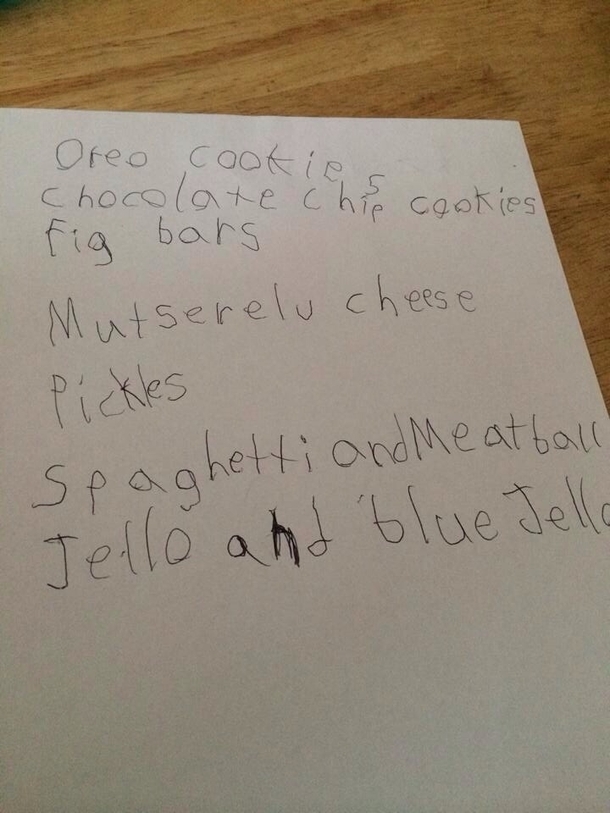 Oreo cookies
chocolate chip cookies
fig bars
Mutserelu cheese
Pickles
Spaghetti and Meatball
Jello and blue Jello